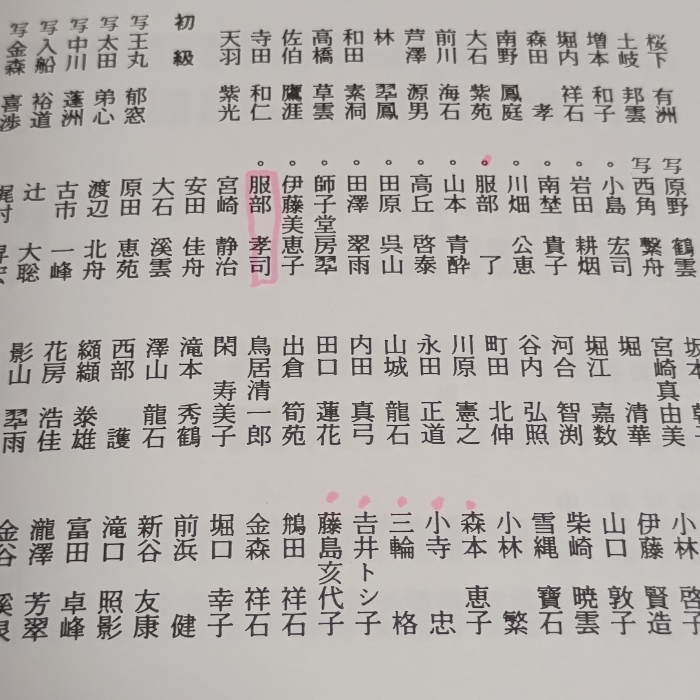 桜下 有洲
土岐 邦雲
増本 和子
堀内 祥石
森田 孝
南野 鳳庭
大石 紫苑
前川 海石
芦澤 源男
林 翆鳳
和田 素洞
高橋 草雲
佐伯 鷹涯
寺田 和仁
天羽 紫光
初級
写 王丸 郁窓
写 太田 弟心
写 中川 蓬洲
写 入船 裕道
写 金森 喜渉
原野 鶴雲
写 西角 繫舟
写 小島 宏司
。岩田 耕烟
。南埜 貴子
。川畑 公恵
。服部 了
。山本 青酔
。高丘 啓泰
。田原 呉山
。田澤 翠雨
。師子堂房翆
。伊藤美恵子
。服部 孝司
宮崎 静治
安田 佳舟
大石 溪雲
原田 恵苑
渡辺 北舟
古市 一峰
辻 大聡
梶村
宮崎真由美
堀 清華
堀江 嘉数
河合 智渕
谷内 弘照
町田 北伸
川原 憲之
永田 正道
山城 龍石
内田 真弓
田口 蓮花
出倉 筍苑
鳥居清一郎
閑 寿美子
滝本 秀鶴
澤山 龍石
西部 護
纐纈 泰雄
花房 浩佳
影山 翆雨
小林 啓子
伊藤 賢造
山口 敦子
柴崎 暁雲
雪縄 寶石
小林 繁
森本 恵子
小寺 忠
三輪 格
吉井トシ子
藤島亥代子
鵤田 祥石
金森 祥石
堀口 幸子
前浜 健
新谷 友康
滝口 照影
富田 卓峰
瀧澤 芳翠
金谷